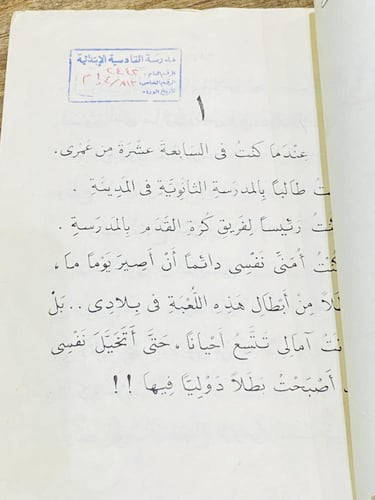 مدرسة القادسية الإبتدائية
الرقم العام: ٢٤٤٢
الرقم الخاص: ٤/٨١٣ م!
تاريخ الورود:
١
عِنْدَمَا كُنْتُ فِى السَّابِعَةَ عَشْرَةَ مِن عُمْرِى.
تُ طَالِبًا بِالمَدْرَسَةِ الثَّانَوِيَّةِ فِى المَدِينَةِ .
نْتُ رَئِيسًا لِفَرِيقِ كُرَةِ القَدَمِ بِالمَدْرَسَةِ .
كُنْتُ أُمَنِّى نَفْسِى دَائمًا أَنْ أَصِيرَ يَوْمًا مَا،
طَلًا مِنْ أَبْطَالِ هَذِهِ اللُّعْبَةِ فِى بِلَادِى .. بَلْ
نَتْ آمَالِى تَتَّسِعُ أَحْيَانًا ، حَتَّى أَتَخَيَّلَ نَفْسِى
أَصْبَحْتُ بَطَلًا دَوْلِيًّا فِيهَا !!